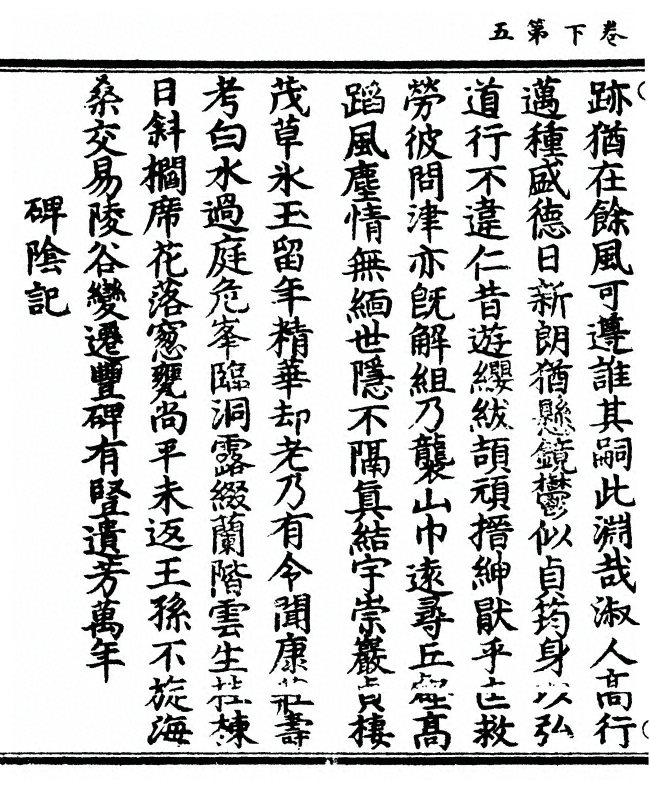 卷下第五
跡猶在餘風可遵誰其嗣此淵哉淑人高行
邁種盛德日新朗猶懸鏡欝似貞筠身以弘
道行不違仁昔遊纓紱頡頏搢紳猒乎救
勞彼問津亦旣解組乃襲山巾遠尋丘高
蹈風塵情無緬世隱不隔眞結宇崇巖貞棲
茂草氷玉留年精華却老乃有令聞康莊壽
考白水過庭危峯臨洞露綴蘭階雲生棟
日斜櫚席花落窓甕尚平未返王孫不旋海
桑交易陵谷變遷豐碑有竪遺芳萬年
碑陰記